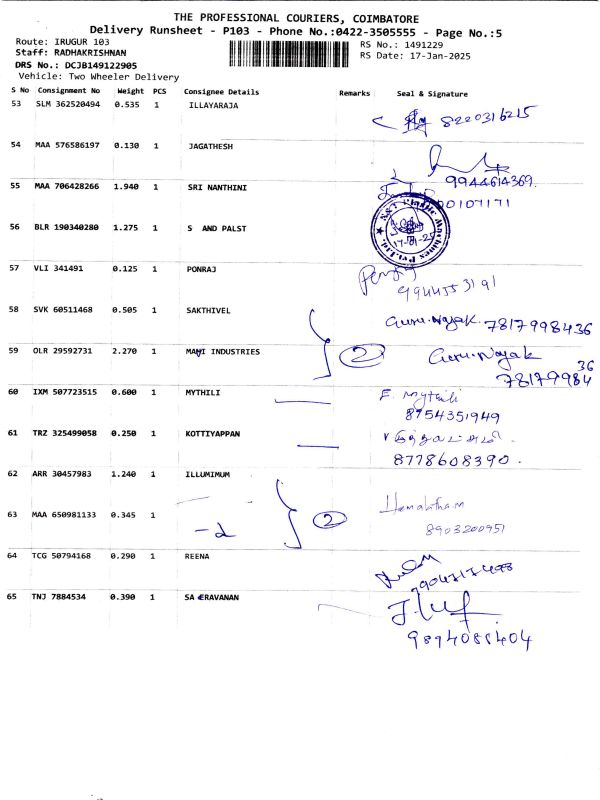 THE PROFESSIONAL COURIERS, COIMBATORE
Delivery Runsheet - P103 - Phone No.:0422-3505555 - Page No.:5
Route: IRUGUR 103
RS No.: 1491229
Staff: RADHAKRISHNAN
RS Date: 17-Jan-2025
DRS No.: DCJB149122905
Vehicle: Two Wheeler Delivery
S No Consignment No Weight PCS Consignee Details Remarks Seal & Signature
53 SLM 362520494 0.535 1 ILLAYARAJA 8220316215
54 MAA 576586197 0.130 1 JAGATHESH
9944614369
55 MAA 706428266 1.940 1 SRI NANTHINI
56 BLR 190340280 1.275 1 S AND PALST
17-01-25
57 VLI 341491 0.125 1 PONRAJ
9944553191
58 SVK 60511468 0.505 1 SAKTHIVEL Guru.Nayak 7817998436
59 OLR 29592731 2.270 1 MANI INDUSTRIES 2 Guru.Nayak
7817998436
60 IXM 507723515 0.600 1 MYTHILI E. Mytili
8754351949
61 TRZ 325499058 0.250 1 KOTTIYAPPAN
8778608390.
62 ARR 30457983 1.240 1 ILLUMIMUM
63 MAA 650981133 0.345 1 2 Hemalatham
8903200951
64 TCG 50794168 0.290 1 REENA
65 TNJ 7884534 0.390 1 SA ERAVANAN
9894088404